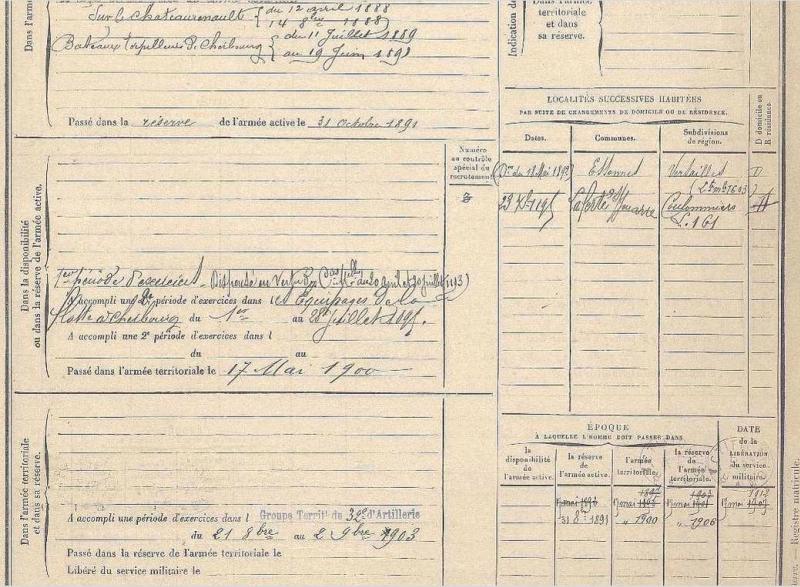 Dans l'armée
Sur le Chateaurenault
du 12 avril 1888
14 8bre 1888
Bateaux torpilleurs de Cherbourg
du 11 Juillet 1889
au 19 Juin 1891
Passé dans la réserve de l'armée active le 31 octobre 1891
Indication de
Dans l'armée
territoriale
et dans
sa réserve.
LOCALITÉS SUCCESSIVES HABITÉES
PAR SUITE DE CHANGEMENTS DE DOMICILE OU DE RÉSIDENCE.
Dates.
Communes.
Subdivisions
de région.
D domicile ou
R résidence.
du 18 Mai 1892
Essonnes
Versailles
D
Coulommiers
Dans la disponibilité
ou dans la réserve de l'armée active.
Numéro
au contrôle
spécial du
recrutement
1ère période d'exercices
A accompli une 2e période d'exercices dans les Equipages de la
flotte à Cherbourg du 1er au 28 Juillet
A accompli une 2e période d'exercices dans l
du au
Passé dans l'armée territoriale le 17 Mai 1900
Dans l'armée territoriale
et dans sa réserve.
A accompli une période d'exercices dans l Groupe Territ. du 32e d'Artillerie
du 21 8bre au 2 9bre 1903
Passé dans la réserve de l'armée territoriale le
Libéré du service militaire le
ÉPOQUE
À LAQUELLE L'HOMME DOIT PASSER DANS
la
disponibilité
de
l'armée active.
la réserve
de
l'armée active.
l'armée
territoriale.
la réserve
de
l'armée
territoriale.
DATE
de la
LIBÉRATION
du service
militaire.
31 8bre 1891
" 1900
" 1906
Registre matricule.